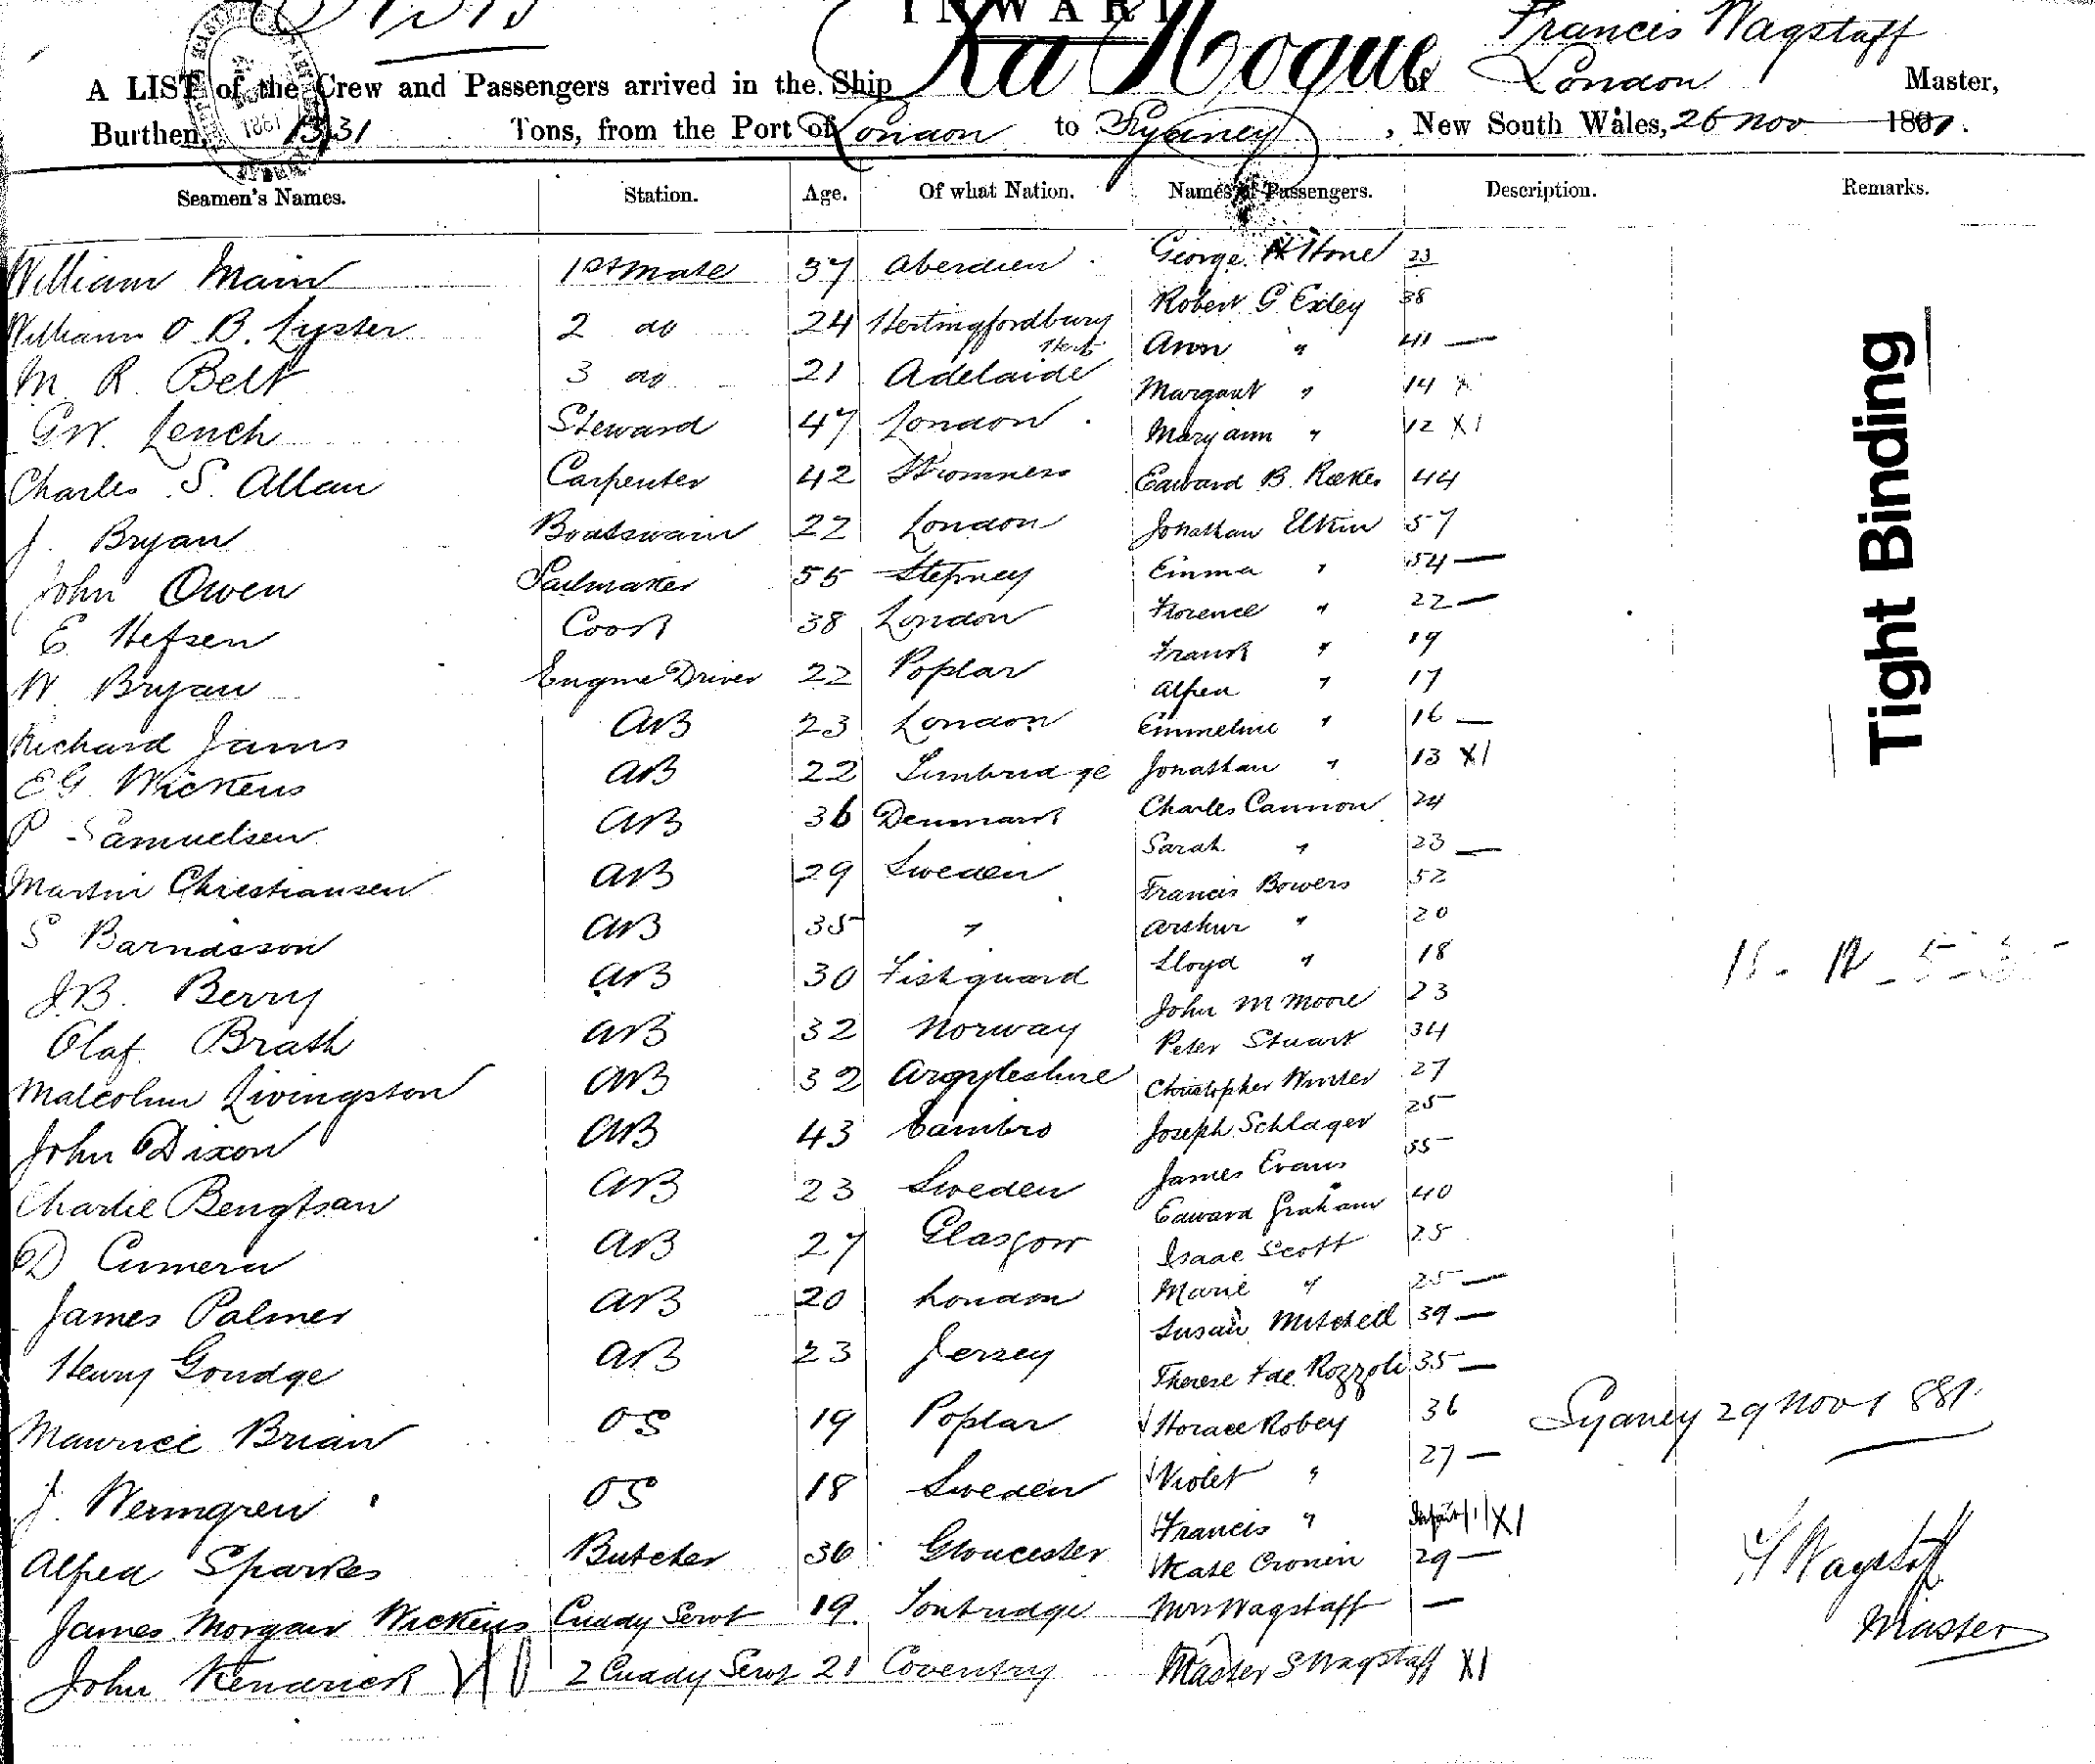 INWARD
La Hogue
Francis Wagstaff
A LIST of the Crew and Passengers arrived in the Ship La Hogue of London Master,
Burthen, 1331 Tons, from the Port of London to Sydney, New South Wales, 26 Nov 1881.
Seamen's Names. Station. Age. Of what Nation. Names of Passengers. Description. Remarks.
William Main 1st Mate 37 Aberdeen George Stone 23
William O B. Lyster 2 do 24 Hertingfordbury Herts Robert G Exley 38
Ann " 41 —
M R Belt 3 do 21 Adelaide Margaret " 14 X
G W. Lench Steward 47 London Mary Ann " 12 X1
Charles S. Allan Carpenter 42 Stromness Edward B. 44
J. Bryan Boatswain 22 London Jonathan Elkin 57
John Owen Sailmaker 55 Stepney Emma " 54 —
E. Hefsen Cook 38 London Florence " 22 —
Frank " 19
W Bryan Engine Driver 22 Poplar Alfred " 17
Richard Janis AB 23 London Emmeline " 16 —
E G. Wickens AB 22 Jonathan " 13 X1
P Samuelsen AB 36 Denmark Charles Cannon 24
Sarah " 23 —
Martin Christiansen AB 29 Sweden Francis Bowers 52
S Barndsson AB 35 " Arthur " 20
J.B. Berry AB 30 Fishguard Lloyd " 18
John M Moore 23
Olaf Brath AB 32 Norway Peter Stuart 34
Malcolm Livingston AB 32 Argyleshire Christopher Winter 27
John Dixon AB 43 Cambro Joseph Schlager 25
James Evans 35
Charlie Bengtsan AB 23 Sweden Edward Graham 40
D Cumeru AB 27 Glasgow Isaac Scott 25
Marie " 25 —
James Palmer AB 20 London Susan Mitchell 39 —
Henry Goudge AB 23 Jersey Therese de Rozzoli 35 —
Maurice Brian OS 19 Poplar Horace Robey 36
Sydney 29 Nov 1881.
Violet " 27 —
J. Wenngren OS 18 Sweden Francis " Infant X1
Alfred Sparkes Butcher 36 Gloucester Kate Cronin 29 —
F Wagstaff
James Morgan Wickens Cuddy Servt 19 Tonbridge Mrs Wagstaff —
Master
John Kendrick 2 Cuddy Servt 21 Coventry Master S Wagstaff X1
Tight Binding